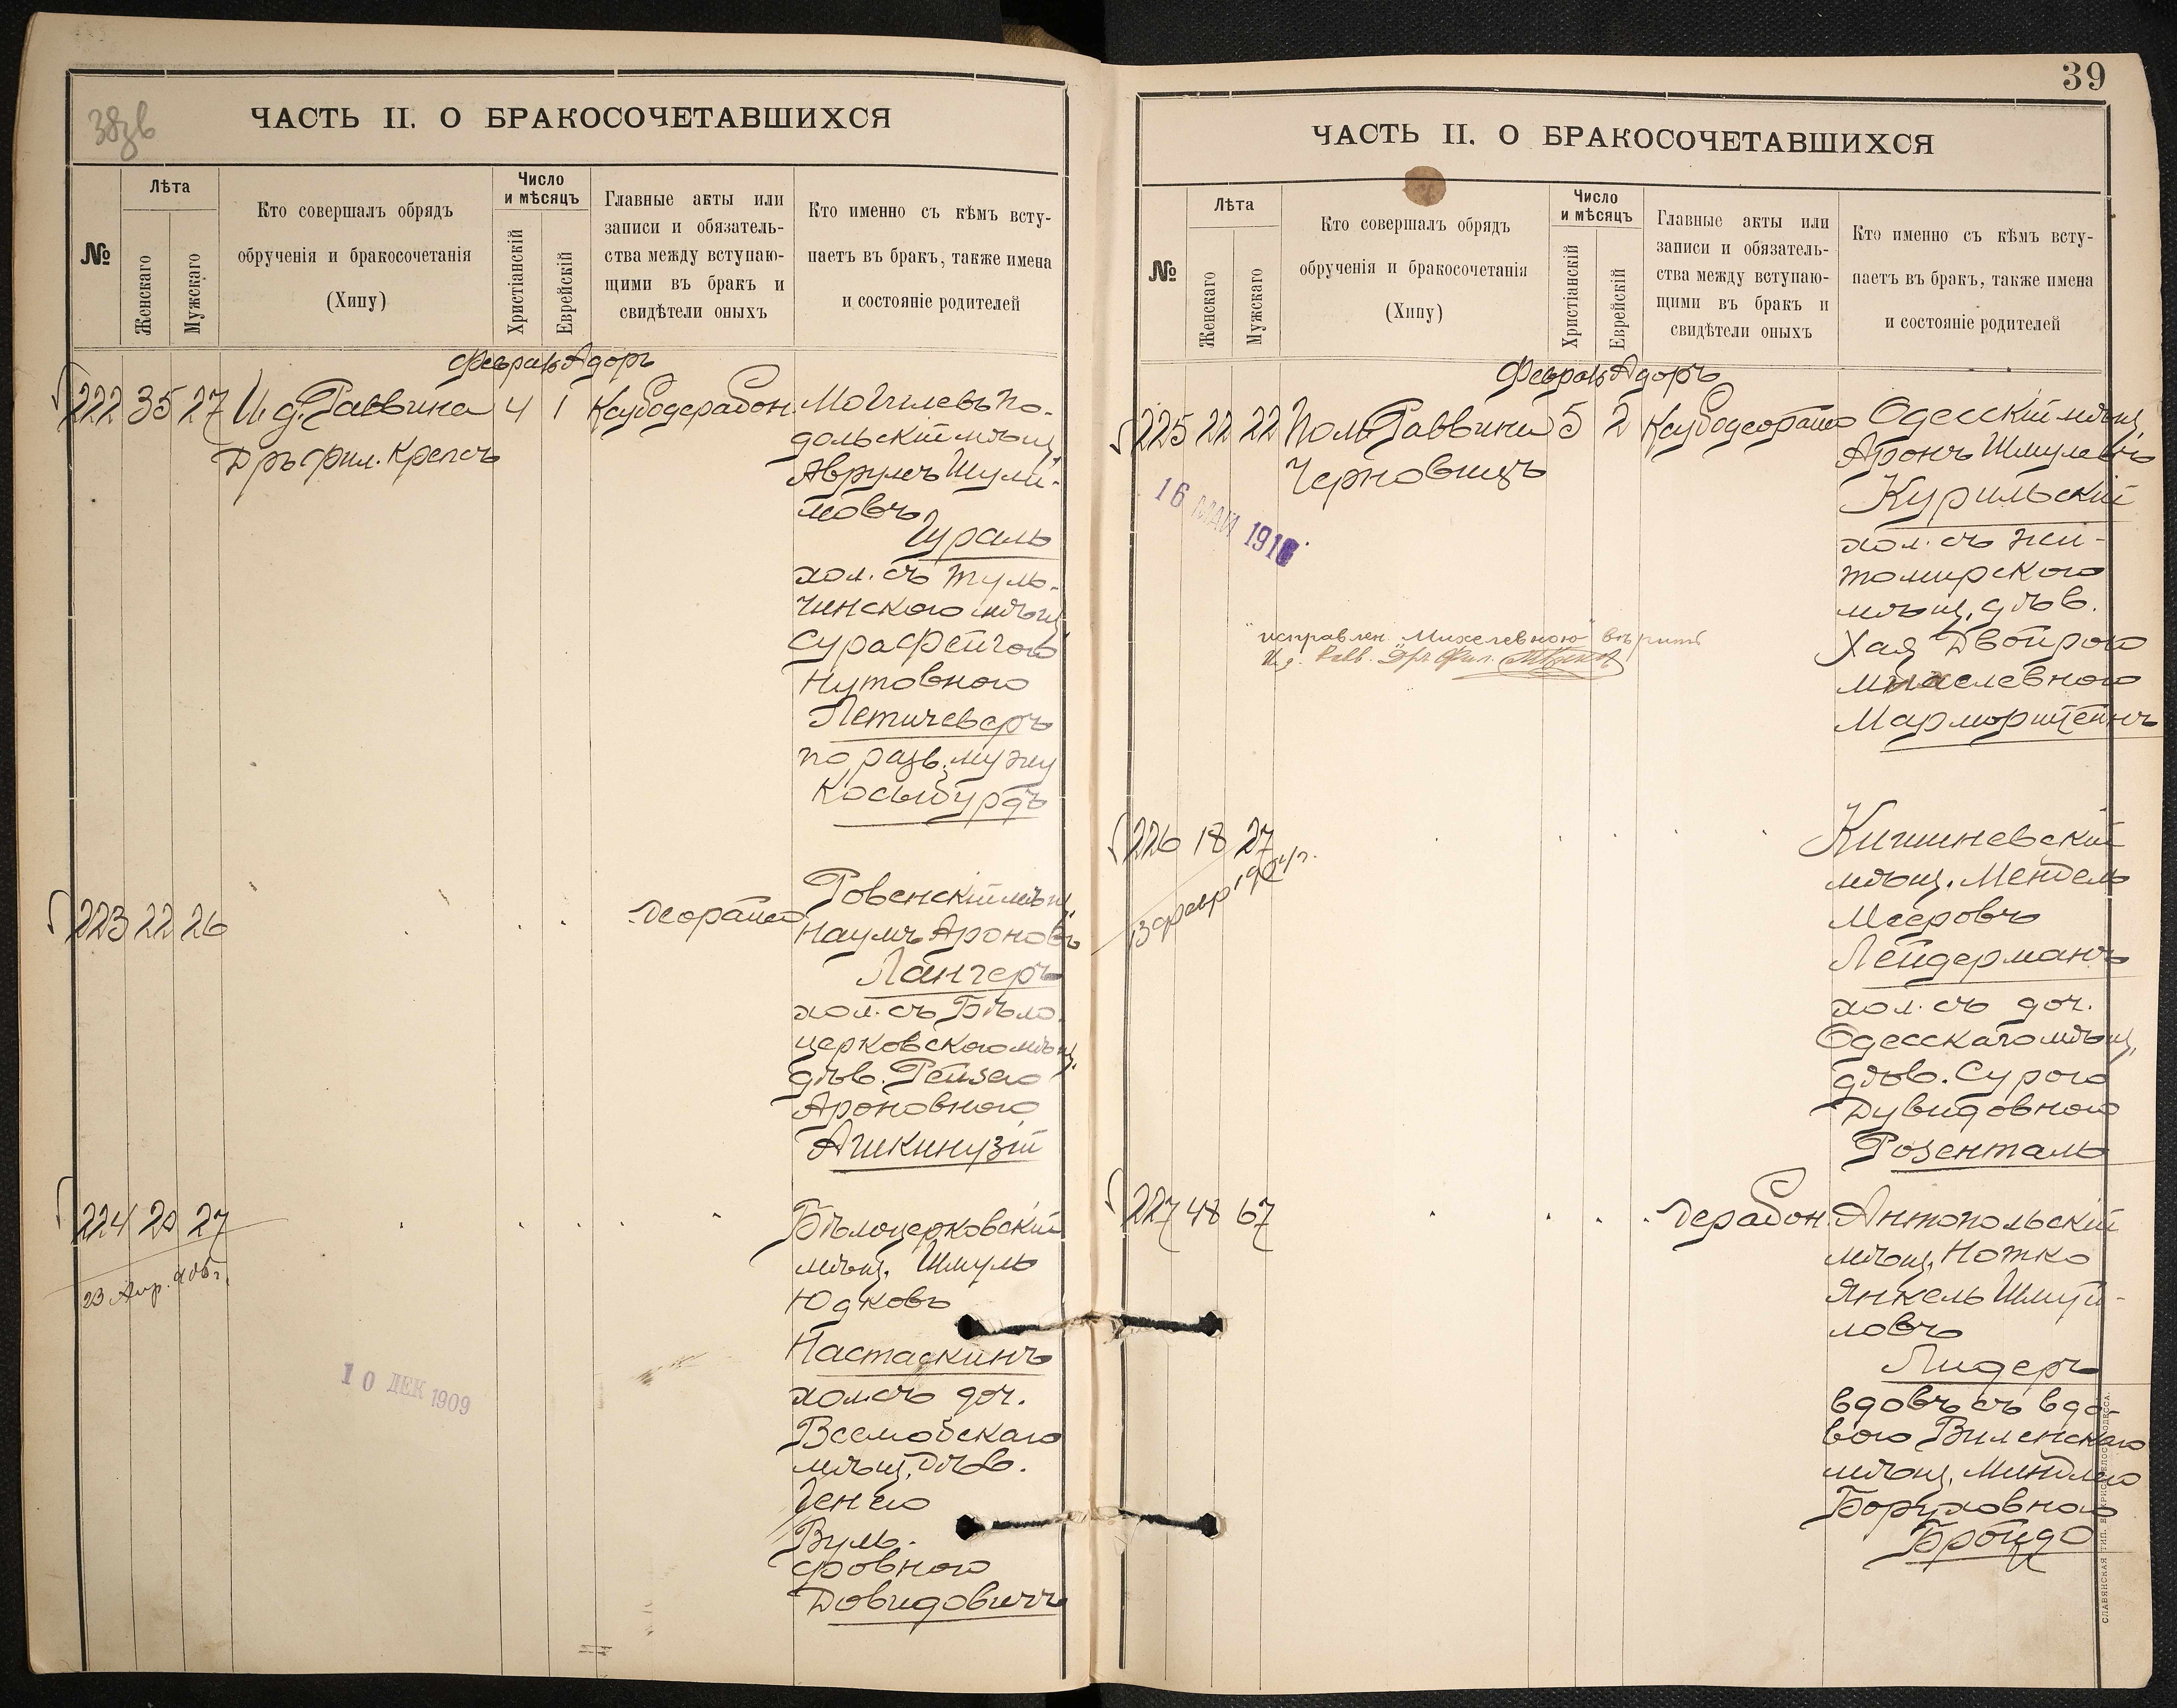 38зв
ЧАСТЬ II. О БРАКОСОЧЕТАВШИХСЯ
№
Лѣта
Женскаго
Мужскаго
Кто совершалъ обрядъ
обрученія и бракосочетанія
(Хипу)
Число
и мѣсяцъ
Христіанскій
Еврейскій
Главные акты или
записи и обязатель-
ства между вступаю-
щими въ бракъ и
свидѣтели оныхъ
Кто именно съ кѣмъ всту-
паетъ въ бракъ, также имена
и состояніе родителей
Февраль Адоръ
222 35 27 И. д. Раввина 4 1
Дръ фил. Крепсъ
Могилевъ По-
дольскій мѣщ.
Аврумъ Шули-
мовъ
Гураль
хол. съ Туль-
чинскою мѣщ.
Сура Фейгою
Нутовною
Петичеверъ
по разв. мужу
Косыбурдъ
223 22 26
Ровенскій мѣщ.
Наумъ Ароновъ
Лангеръ
хол. съ Бѣло-
церковскою мѣщ.
дѣв. Рейзею
Ароновною
Ашкинузій
224 20 27
23 Апр. 905 г.
10 ДЕК 1909
Бѣлоцерковскій
мѣщ. Шмуль
Юдковъ
Настаскинъ
хол. съ доч.
мѣщ. дѣв.
Генею
Вуль-
фовною
Довидовичъ
39
ЧАСТЬ II. О БРАКОСОЧЕТАВШИХСЯ
№
Лѣта
Женскаго
Мужскаго
Кто совершалъ обрядъ
обрученія и бракосочетанія
(Хипу)
Число
и мѣсяцъ
Христіанскій
Еврейскій
Главные акты или
записи и обязатель-
ства между вступаю-
щими въ бракъ и
свидѣтели оныхъ
Кто именно съ кѣмъ всту-
паетъ въ бракъ, также имена
и состояніе родителей
Февраль Адоръ
225 22 22 Пом. Раввина 5 2
Черновицъ
16 МАЙ 191
"исправлен. Михелевною" вѣрить
И. д. Равв. Дръ Фил.
Одесскій мѣщ.
Аронъ Шмулевъ
Курильскій
хол. съ Жи-
томирскою
мѣщ. дѣв.
Хая Двойрою
Михелевною
Марморштейнъ
226 18 27
13 февр. 1904 г.
Кишиневскій
мѣщ. Мендель
Мееровъ
Лейдерманъ
хол. съ доч.
Одесскаго мѣщ.
дѣв. Сурою
Дувидовною
Розенталь
227 48 67
Антопольскій
мѣщ. Нотко
Янкель Шмуй-
ловъ
Лидеръ
вдовъ съ вдо-
вою Виленскаго
мѣщ. Миндлею
Боруховною
Бройдо
СЛАВЯНСКАЯ ТИП. ОДЕССА.